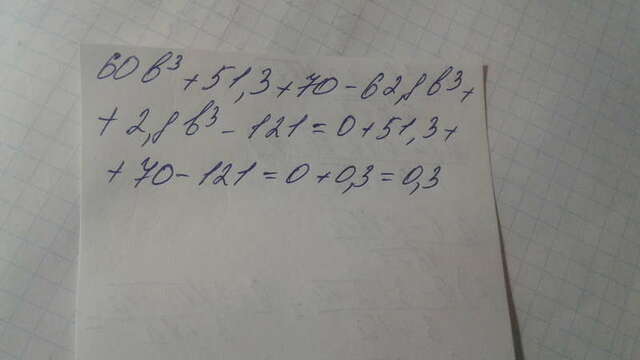 60в³+51,3+70-62,8в³+
+2,8в³-121=0+51,3+
+70-121=0+0,3=0,3